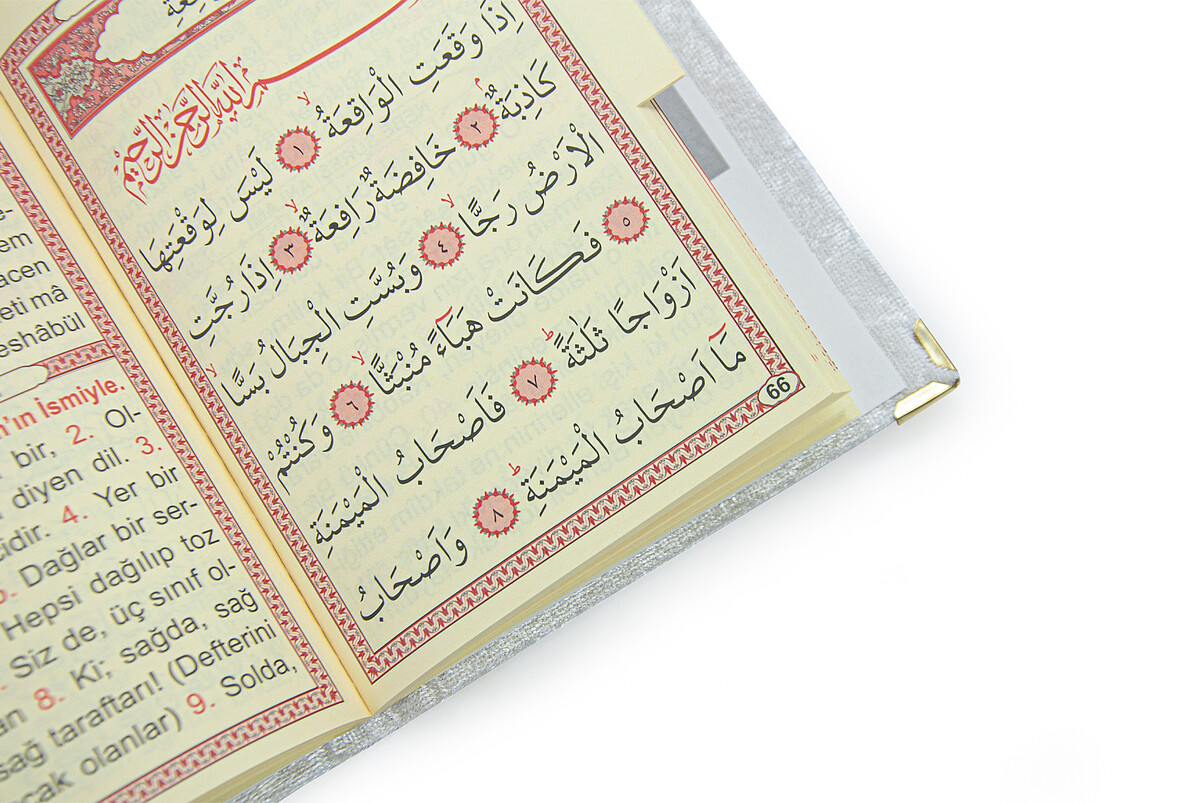 بِسْمِ اللهِ الرَّحْمٰنِ الرَّحِيمِ
اِذَا وَقَعَتِ الْوَاقِعَةُ ١ لَيْسَ لِوَقْعَتِهَا
كَاذِبَةٌ ٢ خَافِضَةٌ رَافِعَةٌ ٣ اِذَا رُجَّتِ
الْاَرْضُ رَجًّا ٤ وَبُسَّتِ الْجِبَالُ بَسًّا
٥ فَكَانَتْ هَبَآءً مُنْبَثًّا ٦ وَكُنْتُمْ
اَزْوَاجًا ثَلٰثَةً ٧ فَاَصْحَابُ الْمَيْمَنَةِ
مَآ اَصْحَابُ الْمَيْمَنَةِ ٨ وَاَصْحَابُ
66
em
acen
mâ
eshâbül
İsmiyle.
bir, 2. Ol-
diyen dil. 3.
4. Yer bir
Dağlar bir ser-
Hepsi dağılıp toz
Siz de, üç sınıf ol-
8. Ki; sağda, sağ
sağ taraftarı! (Defterini
olanlar) 9. Solda,